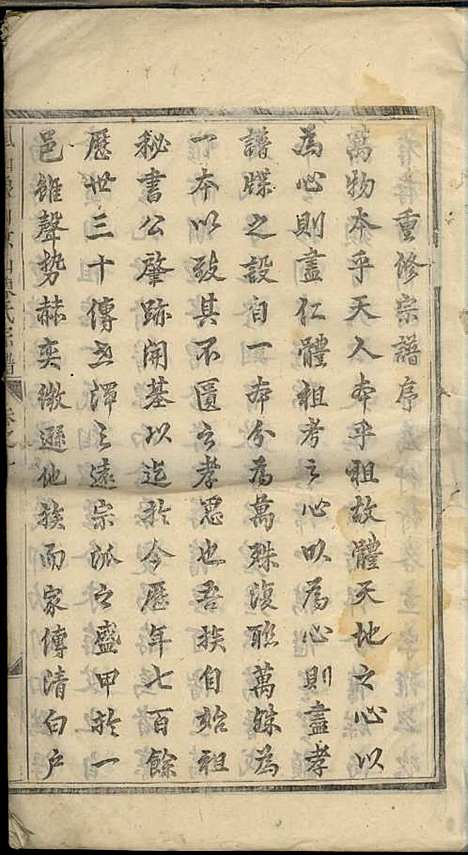 重修宗譜序
萬物本乎天人本乎祖故體天地之心以
為心則盡仁體祖考之心以為心則盡孝
譜牒之設自一本分為萬殊復聯萬殊為
一本以致其不匱之孝思也吾族自始祖
秘書公肇跡開基以迄於今歷年七百餘
歷世三十傳派澤之遠宗派之盛甲於一
邑雖聲勢赫奕微遜他族而家傳清白戶
氏宗譜